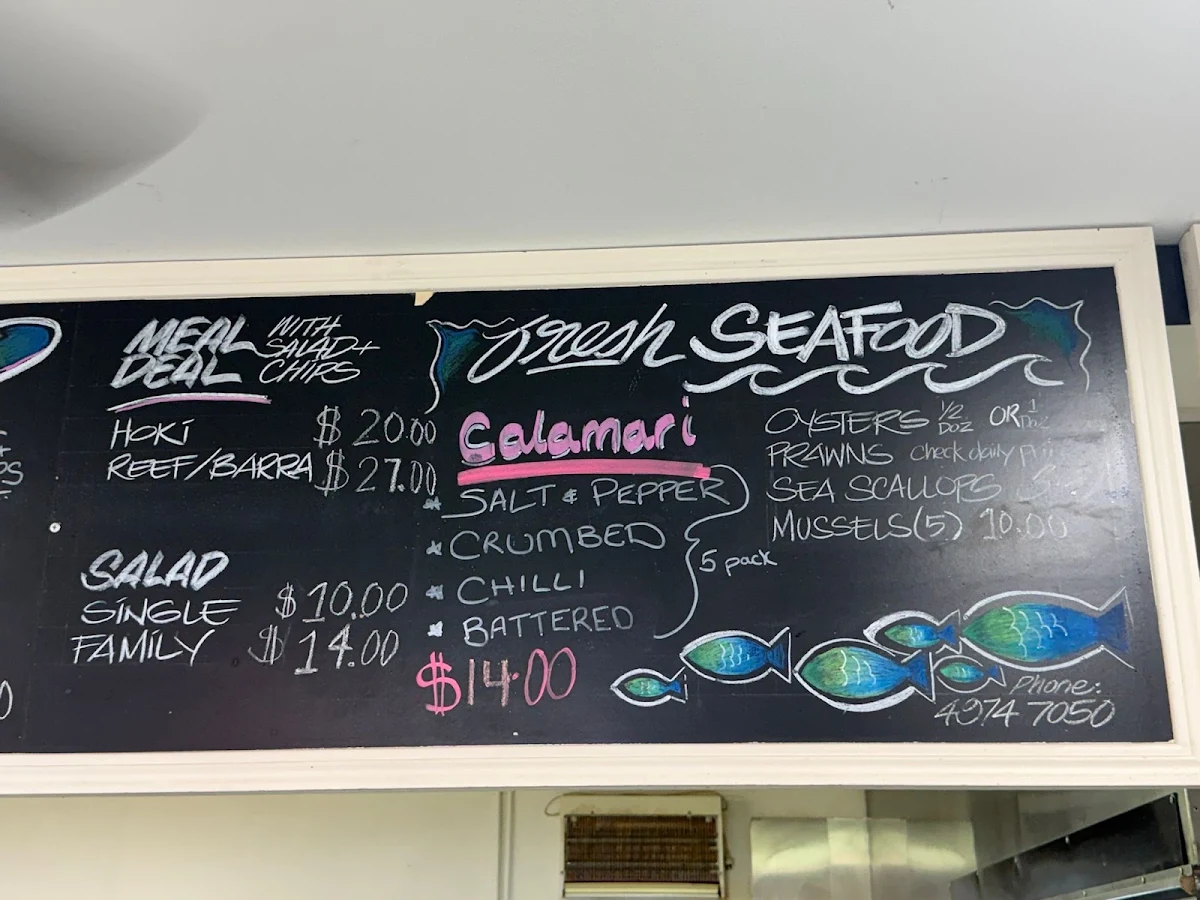 MEAL DEAL WITH SALAD + CHIPS
HOKI $20.00
REEF/BARRA $27.00
SALAD
SINGLE $10.00
FAMILY $14.00
fresh SEAFOOD
Calamari
SALT & PEPPER
CRUMBED
CHILLI
BATTERED
5 pack
$14.00
OYSTERS 1/2 DOZ OR 1 DOZ
PRAWNS check daily
SEA SCALLOPS
MUSSELS(5) 10.00
Phone:
4974 7050